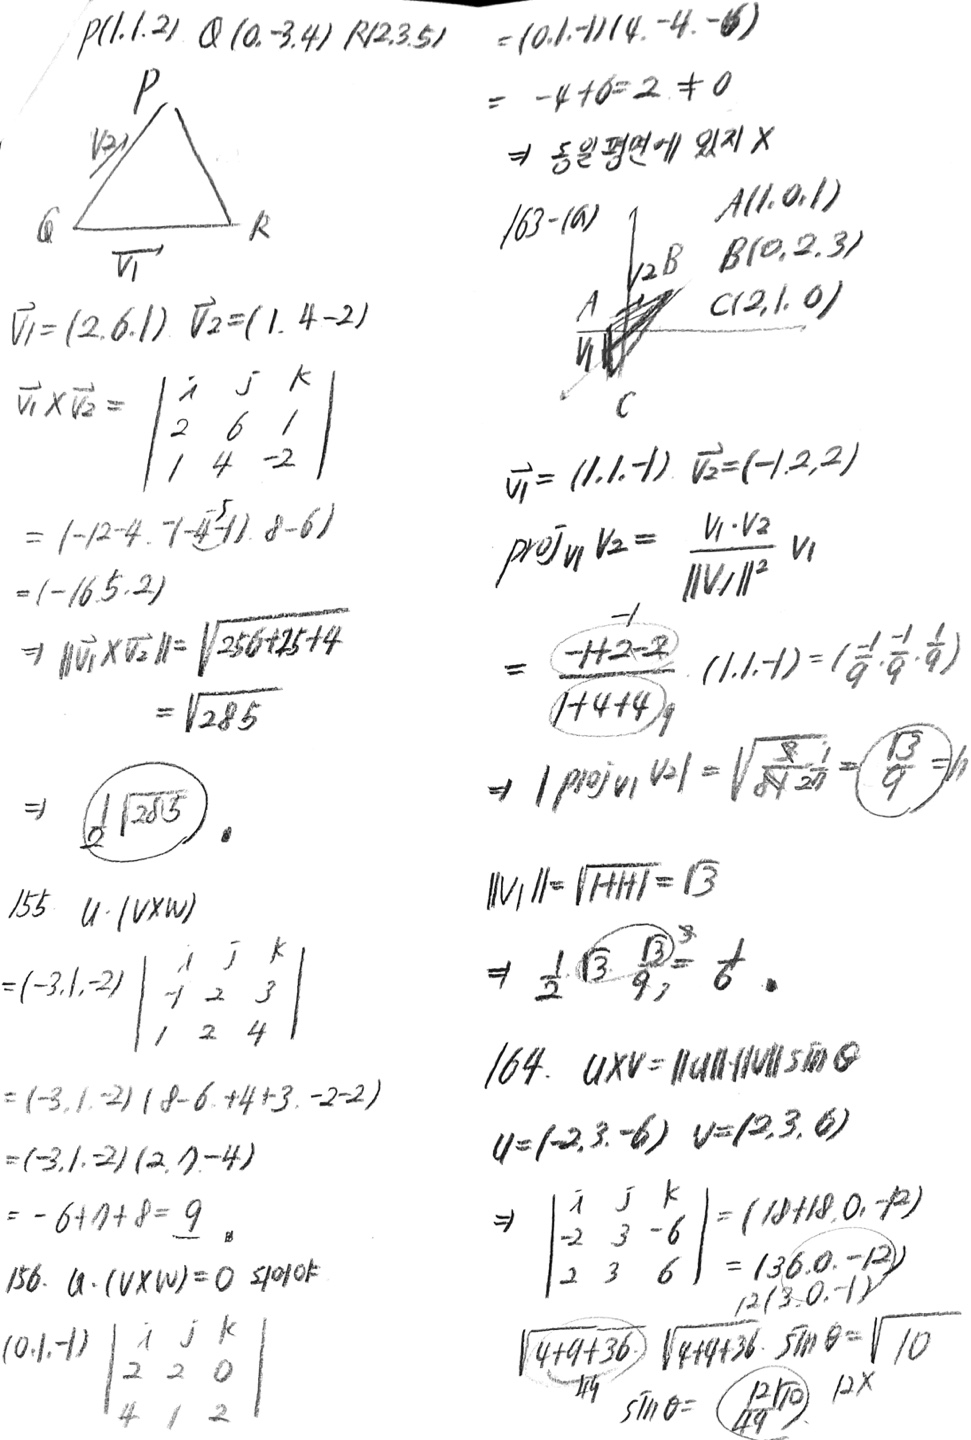 P(1.1.2) Q(0.-3.4) R(2.3.5)
P
V2
Q R
V1
V1=(2.6.1) V2=(1.4-2)
V1×V2= | i j k
2 6 1
1 4 -2 |
=(-12-4. -(-4-1). 8-6)
-5
=(-16.5.2)
⇒ ||V1×V2||=√256+25+4
=√285
⇒ 1/2 √285 .
155 u·(v×w)
=(-3.1.-2) | i j k
-1 2 3
1 2 4 |
=(-3.1.-2)(8-6.+4+3.-2-2)
=(-3.1.-2)(2.7.-4)
=-6+7+8=9 .
156. u·(v×w)=0 되어야
(0.1.-1) | i j k
2 2 0
4 1 2 |
=(0.1.-1)(4.-4.-6)
= -4+6=2 ≠0
⇒ 동일평면에 있지 X
163-(a) A(1.0.1)
V2 B B(0.2.3)
A C(2.1.0)
V1
C
V1=(1.1.-1) V2=(-1.2,2)
proj V1 V2= V1·V2 / ||V1||² V1
-1
= -1+2-2 / 1+4+4 (1.1.-1)=(-1/9.-1/9.1/9)
9
⇒ |proj V1 V2|= = √3/9 =h
||V1||=√1+1+1=√3
⇒ 1/2 √3 √3/9 = 1/6 .
3
164. u×v=||u||·||v||sinθ
u=(-2,3.-6) v=(2,3,6)
⇒ | i j k
-2 3 -6
2 3 6 | =(18+18.0.-12)
=(36.0.-12)
12(3.0.-1)
√4+9+36 √4+9+36 sinθ=√10
49 12×
sinθ= 12√10/49